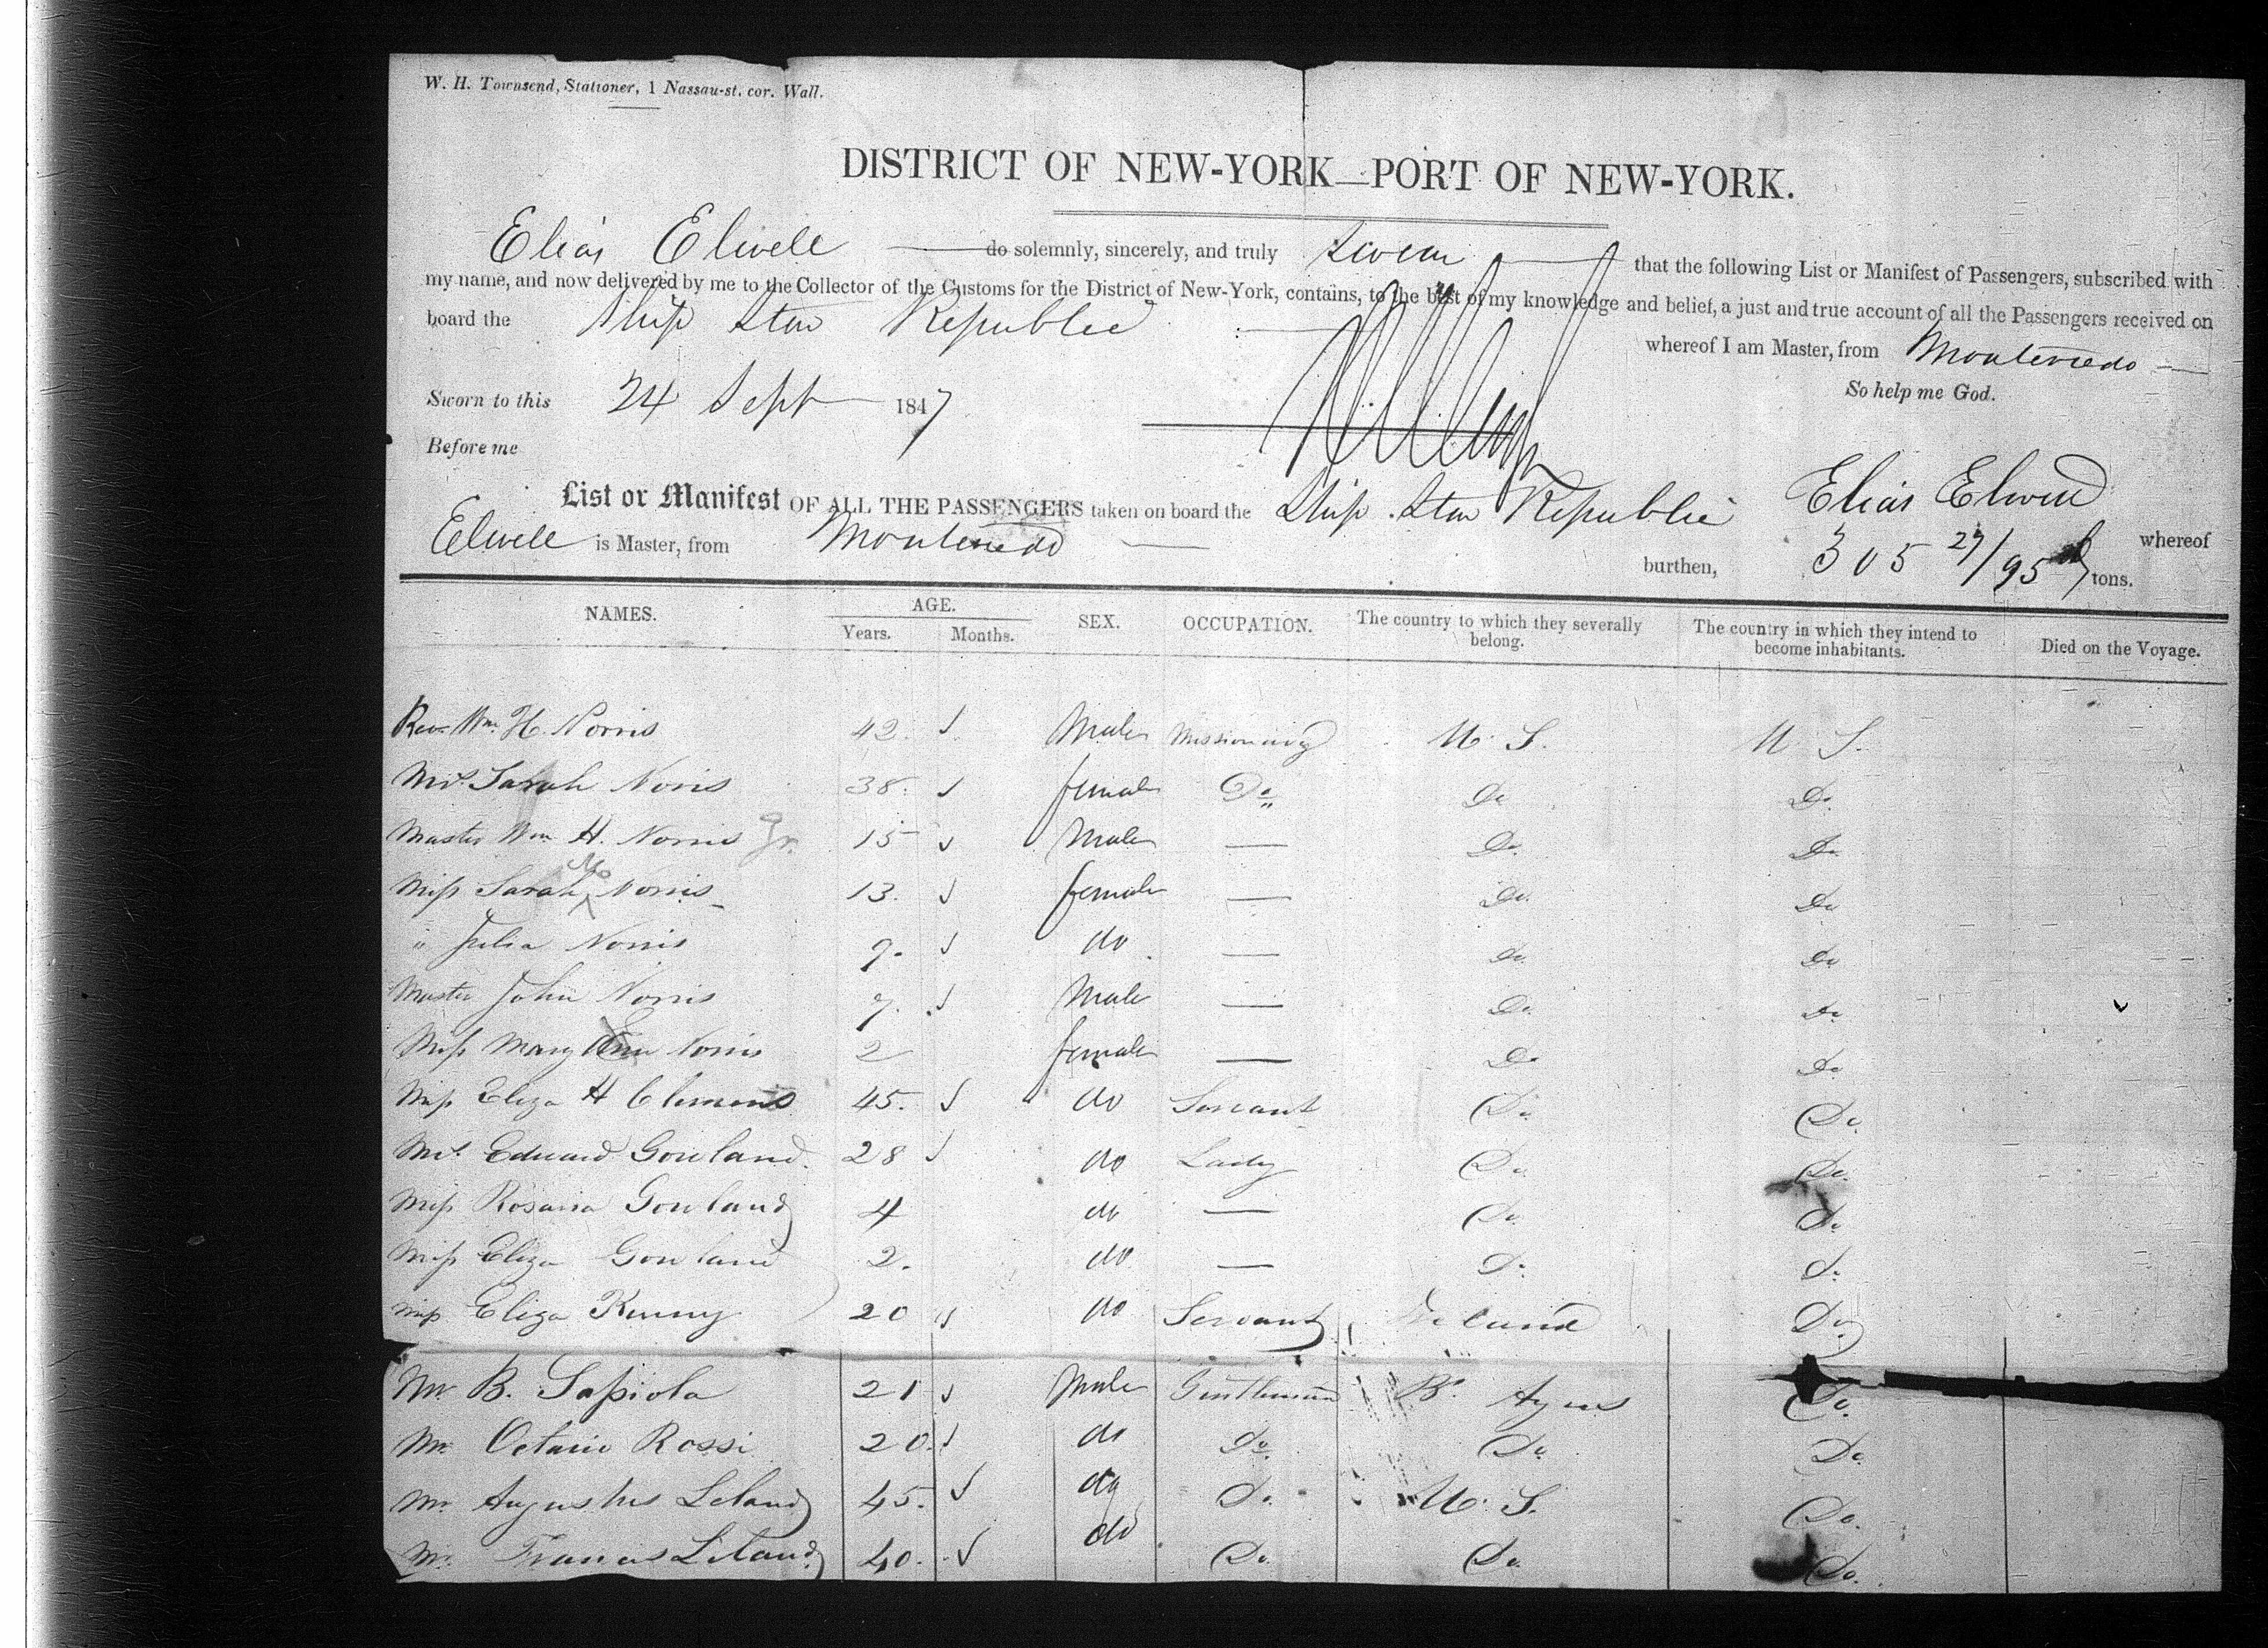 W. H. Townsend, Stationer, 1 Nassau-st. cor. Wall.
DISTRICT OF NEW-YORK—PORT OF NEW-YORK.
Elias Elwell do solemnly, sincerely, and truly swear that the following List or Manifest of Passengers, subscribed with
my name, and now delivered by me to the Collector of the Customs for the District of New-York, contains, to the best of my knowledge and belief, a just and true account of all the Passengers received on
board the Ship Star Republic whereof I am Master, from Montevedo
So help me God.
Sworn to this 24 Sept 1847
Before me
Elias Elwell
List or Manifest OF ALL THE PASSENGERS taken on board the Ship Star Republic whereof
Elwell is Master, from Montevedo burthen, 305 27/95 tons.
NAMES. AGE. SEX. OCCUPATION. The country to which they severally belong. The country in which they intend to become inhabitants. Died on the Voyage.
Years. Months.
Rev. Wm. H. Norris 42 Male Missionary U. S. U S.
Mrs. Sarah Norris 38. female Do Do Do.
Master Wm H. Norris Jr. 15 Male — Do. Do
Miss Sarah Mo Norris 13. female — Do. Do
" Julia Norris 9. do — Do. Do
Master John Norris 7. Male — Do. Do
Miss Mary Norris 2 female — Do Do
Miss Eliza H Clemens 45. do Servant Do. Do.
Mrs. Edward Gowland. 28 do Lady Do. Do.
Miss Rosaria Gowland 4 do — Do. Do.
Miss Eliza Gowland 2. do — Do. Do.
Miss Eliza Kenny 20 do Servant Ireland Do
Mr. B. Sapiola 21 Male Gentleman Bs. Ayres Do.
Mr. Octavio Rossi 20. do Do. Do. Do.
Mr Augustus Leland 45. do Do. U. S. Do.
Mr. Francis Leland 40. do Do. Do. Do.